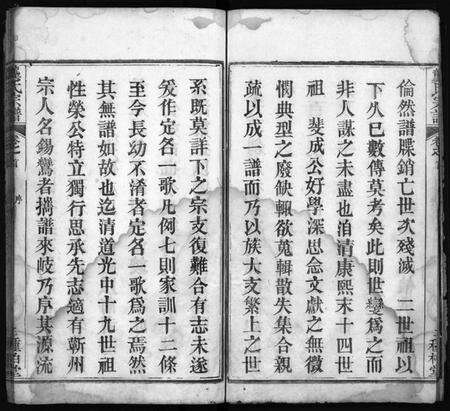 倫然譜牒銷亡世次殘滅　二世祖以
下久已數傳莫考矣此則世變為之而
非人謀之未盡也洎清康熙末十四世
祖　斐成公好學深思念文獻之無徵
憫典型之廢缺輒欲蒐輯散失集合親
疏以成一譜而乃以族大支繁上之世
系既莫詳下之宗支復難合有志未遂
爰作定名一歌凡例七則家訓十二條
至今長幼不淆者定名一歌為之焉然
其無譜如故也迄清道光中十九世祖
性榮公特立獨行思承先志適有蘄州
宗人名錫鸞者攜譜來岐乃序其源流
氏宗譜
卷之首
序